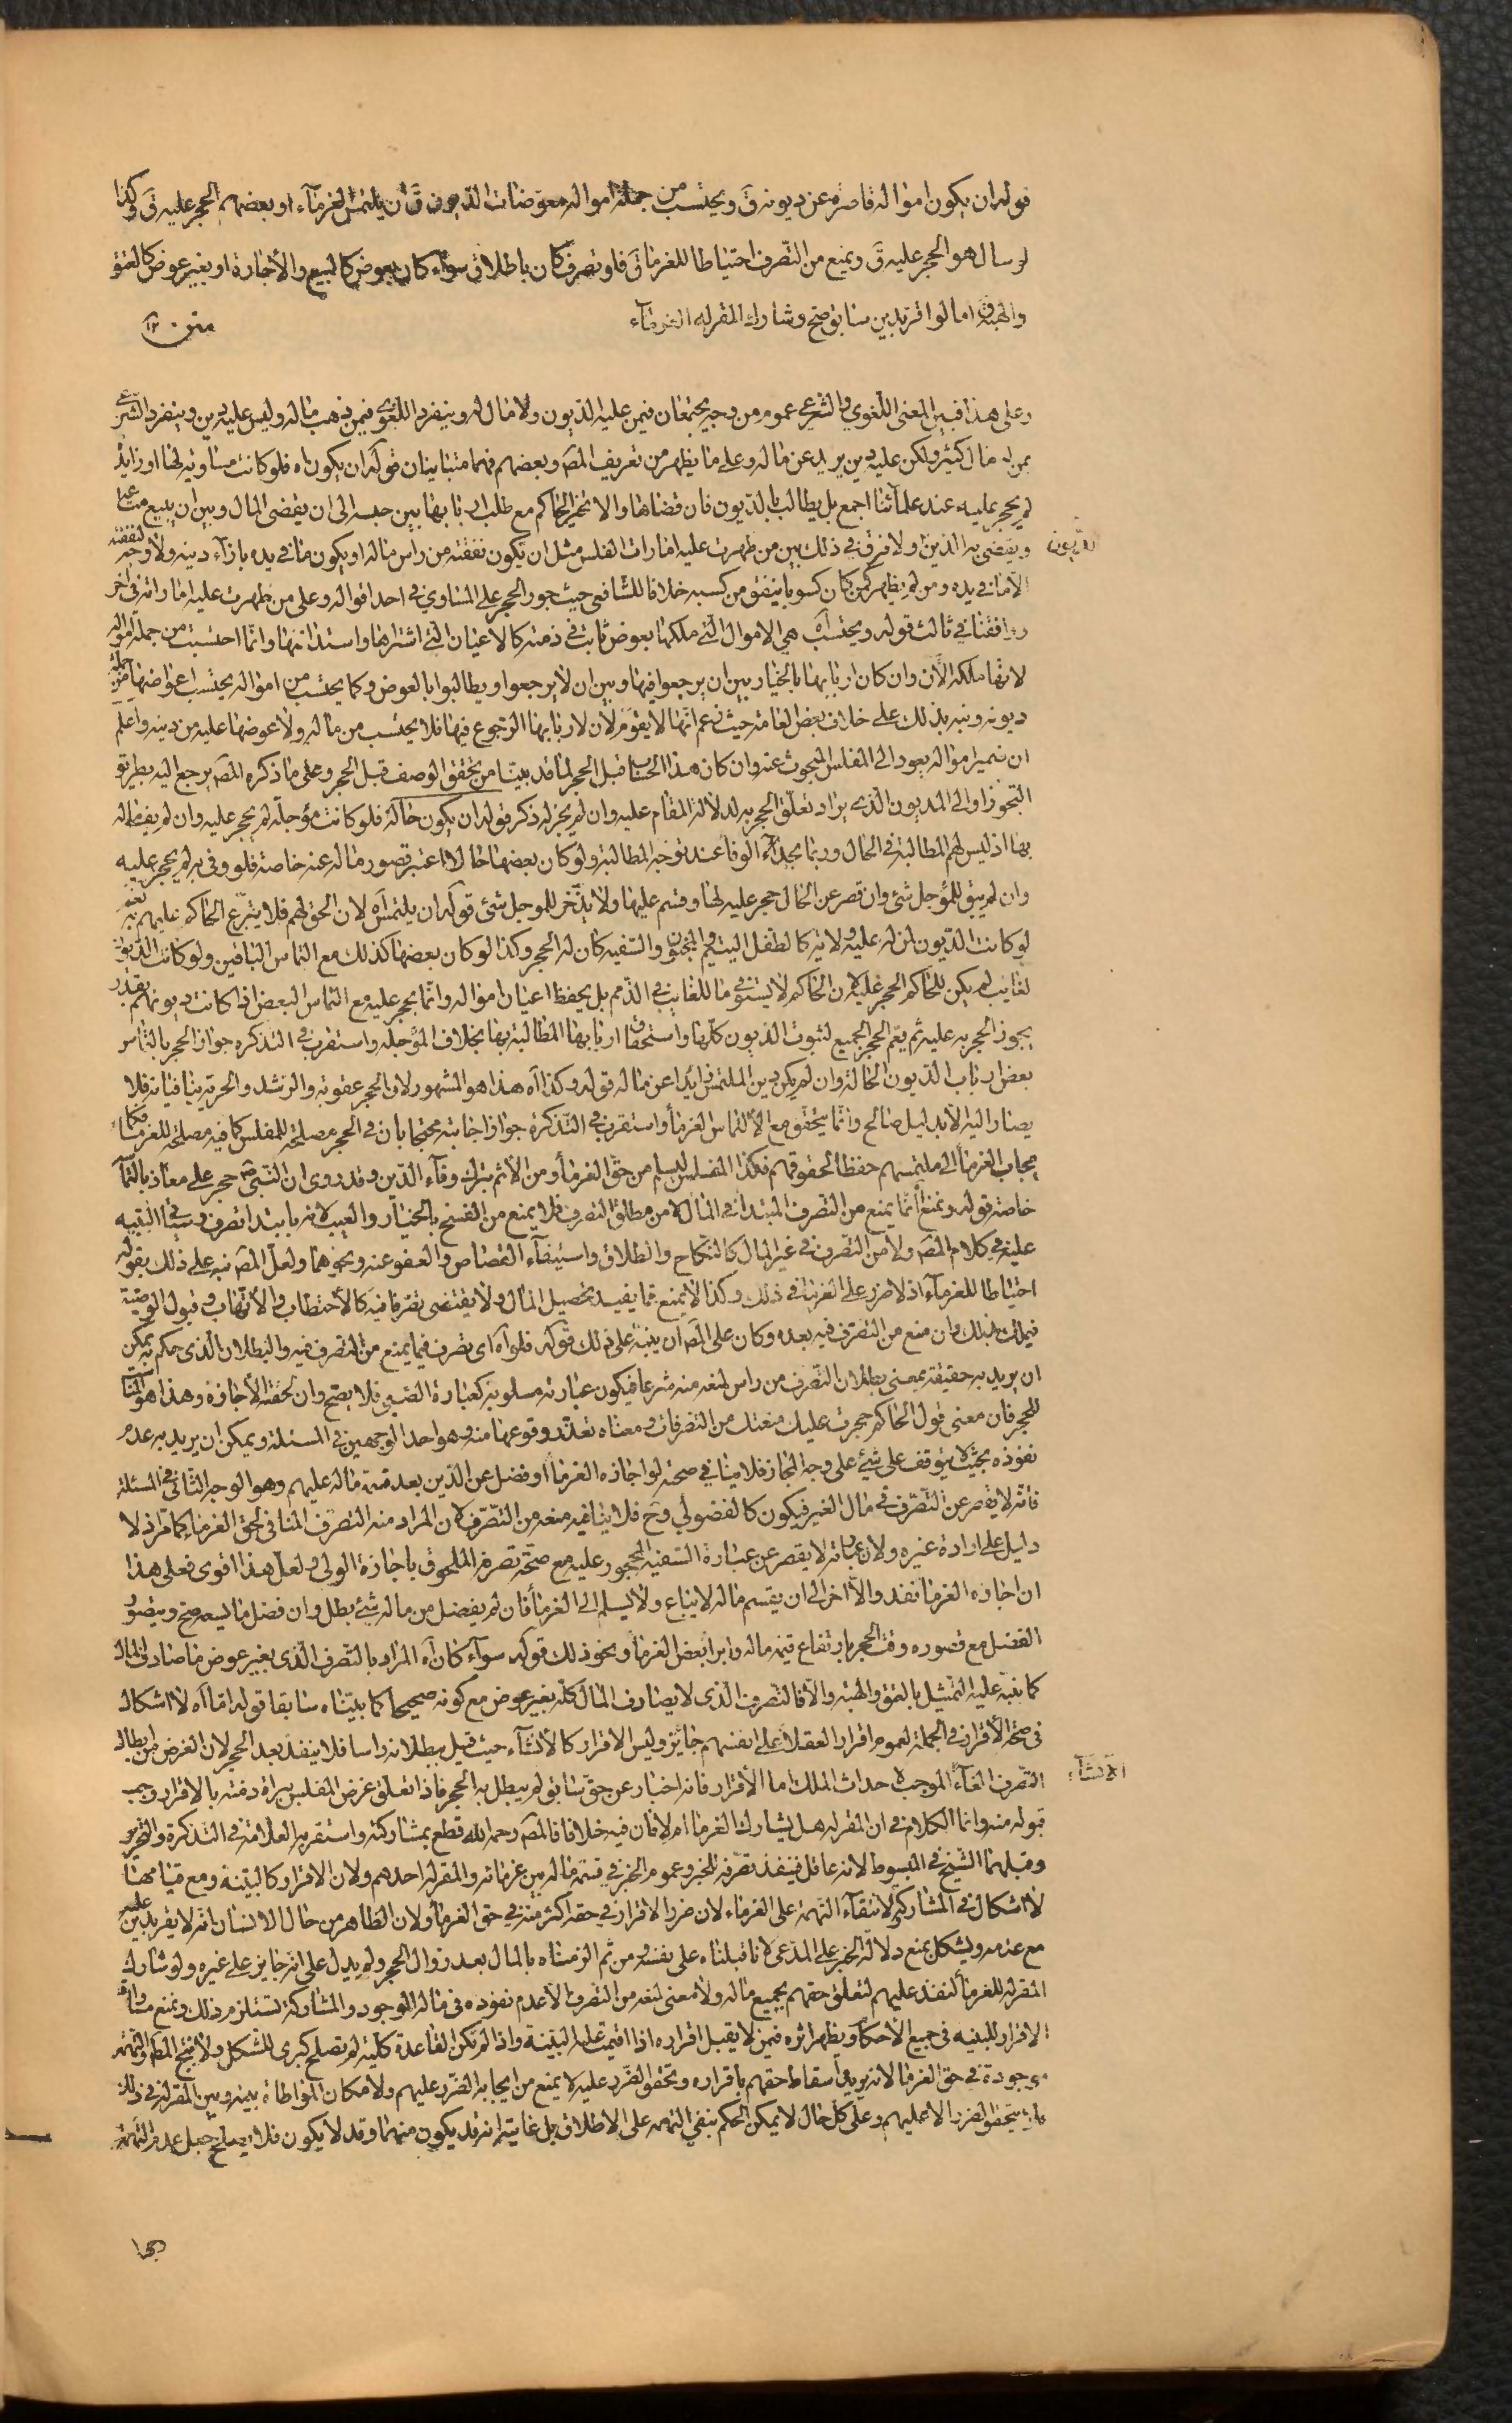 قوله ان يكون امواله قاصرة عن ديونه ق ويحتسب من جملة امواله معوضات الديون ق ان يلتمس الغرماء او بعضهم الحجر عليه ق وكذا
لو سال هو الحجر عليه ق ويمنع من التصرف احتياطا للغرما ق فلو تصرف كان باطلا ق سواء كان بعوض كالبيع والاجارة او بغير عوض كالعتق
والهبة ق اما لو اقر بدين سابق صح وشارك المقر له الغرماء
متن ١٢
وعلى هذا فبين المعنى اللغوي والشرعي عموم من وجه يجتمعان فيمن عليه الديون ولا مال له وينفرد اللغوي فيمن ذهب ماله وليس عليه دين وينفرد الشرعي
بمن له مال كثير ولكن عليه دين يزيد عن ماله وعلى ما يظهر من تعريف المص وبعضهم فهما متباينان قوله ان يكون اه فلو كانت مساوية لها او زايدة
لم يحجر عليه عند علمائنا اجمع بل يطالب بالديون فان قضاها والا تخير الحاكم مع طلب اربابها بين حبسه الى ان يقضى المال وبين ان يبيع متاعه
ويقضى به الدين ولا فرق في ذلك بين من ظهرت عليه امارات الفلس مثل ان تكون نفقته من راس ماله او يكون ما في يده بازاء دينه ولا وجه لنفقته
الديون
الا ما في يده ومن لم يظهر كمن كان كسوبا ينفق من كسبه خلافا للشافعي حيث جوز الحجر على المساوي في احد اقواله وعلى من ظهرت عليه اماراته في اخر
ووافقنا في ثالث قوله ويحتسب اه هي الاموال التي ملكها بعوض ثابت في ذمته كالاعيان التي اشتراها واستدانها وانما احتسبت من جملة امواله
لانها ملكه الان وان كان اربابها بالخيار بين ان يرجعوا فيها وبين ان لا يرجعوا ويطالبوا بالعوض وكما يحتسب من امواله يحتسب اعواضها من جملة
ديونه ونبه بذلك على خلاف بعض العامة حيث زعم انها لا يقوم لان لاربابها الرجوع فيها فلا يحتسب من ماله ولا عوضها عليه من دينه واعلم
ان ضمير امواله يعود الى المفلس المبحوث عنه وان كان هذا الحساب قبل الحجر لما قد بينا من تحقق الوصف قبل الحجر وعلى ما ذكره المص يرجع اليه بطريق
التجوز او الى المديون الذي يراد تعلق الحجر به لدلالة المقام عليه وان لم يجز له ذكر قوله ان يكون حالة فلو كانت مؤجلة لم يحجر عليه وان لم يف ماله
بها اذ ليس لهم المطالبة في الحال وربما يجد الوفا عند توجه المطالبة ولو كان بعضها حالا اعتبر قصور ماله عنه خاصة فلو وفى به لم يحجر عليه
وان لم يبق للمؤجل شئ وان قصر عن الحال حجر عليه لها وقسم عليها ولا يدخر للموجل شئ قوله ان يلتمس اه لان الحق لهم فلا يتبرع الحاكم عليهم به نعم
لو كانت الديون لمن له عليه ولاية كالطفل اليتيم والمجنون والسفيه كان له الحجر وكذا لو كان بعضها كذلك مع التماس الباقين ولو كانت الديون
لغايب لم يكن للحاكم الحجر عليه لان الحاكم لا يستوفي ما للغايب في الذمم بل يحفظ اعيان امواله وانما يحجر عليه مع التماس البعض اذا كانت ديونهم بقدر
يجوز الحجر به عليه ثم يعم الحجر الجميع لثبوت الديون كلها واستحقاق اربابها المطالبة بها بخلاف المؤجله واستقرب في التذكره جواز الحجر بالتماس
بعض ارباب الديون الحالة وان لم يكن دين الملتمس زايدا عن ماله قوله وكذا اه هذا هو المشهور لان الحجر عقوبة والرشد والحرية ينافيانه فلا
يصار اليه الا بدليل صالح وانما يتحقق مع الالتماس الغرما واستقرب في التذكرة جواز اجابته محتجا بان في الحجر مصلحة للمفلس كما فيه مصلحة للغرماء فكما
يجاب الغرما الى ملتمسهم حفظا لحقوقهم فكذا المفلس ليسلم من حق الغرما ومن الاثم بترك وفاء الدين وقد روى ان النبي ص حجر على معاذ بالتماسه
خاصة قوله ويمنع انما يمنع من التصرف المبتدا في المال لا من مطلق التصرف فلا يمنع من الفسخ بالخيار والعيب لانه ليس بابتدا تصرف وسياتي التنبيه
عليه في كلام المص ولا من التصرف في غير المال كالنكاح والطلاق واستيفاء القصاص والعفو عنه ونحوهما ولعل المص نبه على ذلك بقوله
احتياطا للغرماء اذ لا ضرر على الغرما في ذلك وكذا لا يمنع مما يفيد تحصيل المال ولا يقتضى تصرفا فيه كالاحتطاب والاتهاب وقبول الوصية
فيملك بذلك وان منع من التصرف فيه بعده وكان على المص ان ينبه على ذلك قوله فلو اه اى تصرف فيما يمنع من التصرف فيه والبطلان الذى حكم به يمكن
ان يريد به حقيقته بمعنى بطلان التصرف من راس لمنعه منه شرعا فيكون عبارته مسلوبة كعبارة الصبي فلا يصح وان لحقته الاجازة وهذا هو المناسب
للحجر فان معنى قول الحاكم حجرت عليك منعتك من التصرفات ومعناه تعذر وقوعها منه وهو احد الوجهين في المسئلة ويمكن ان يريد به عدم
نفوذه بحيث لا يتوقف على شئ على وجه المجاز فلا ينافي صحته لو اجازه الغرما او فضل عن الدين بعد قسمة ماله عليهم وهو الوجه الثاني في المسئلة
فانه لا يقصر عن التصرف في مال الغير فيكون كالفضولي وح فلا ينافيه منعه من التصرف لان المراد منه التصرف المنافي لحق الغرماء كما مر اذ لا
دليل على ارادة غيره ولان عبارته لا يقصر عن عبارة السفيه المحجور عليه مع صحة تصرفه الملحوق باجازة الولي ولعل هذا اقوى فعلى هذا
ان اجازه الغرما نفذ والا اخر الى ان يقسم ماله لا يباع ولا يسلم الى الغرما فان لم يفضل من ماله شئ بطل وان فضل ما يسعه صح ويتصور
الفضل مع قصوره وقت الحجر بارتفاع قيمة ماله وابرا بعض الغرما ونحو ذلك قوله سواء كان اه المراد بالتصرف الذى بغير عوض ما صادف المال
كما ينبه عليه التمثيل بالعتق والهبة والا فالتصرف الذى لا يصادف المال كله بغير عوض مع كونه صحيحا كما بيناه سابقا قوله اما اه لا اشكال
في صحة الاقرار في الجملة لعموم اقرار العقلا على انفسهم جايز وليس الاقرار كالانشاء حيث قيل ببطلانه راسا فلا ينفذ بعد الحجر لان الغرض من ابطال
التصرف الغاء الموجب لاحداث الملك اما الاقرار فانه اخبار عن حق سابق لم يبطل به الحجر فاذا تعلق غرض المفلس ببراة ذمته بالاقرار وجب
الانشاء
قبوله منه وانما الكلام في ان المقر له هل يشارك الغرما ام لا فان فيه خلافا فالمص رحمه الله قطع بمشاركته واستقر به العلامة في التذكرة والتحرير
وقبلهما الشيخ في المبسوط لانه عاقل فينفذ تصرفه للخبر وعموم الخبر في قسمة ماله بين غرمائه والمقر له احدهم ولان الاقرار كالبينة ومع قيامها
لا اشكال في المشاركة لانتفاء التهمة على الغرماء لان ضرر الاقرار في حقه اكثر منه في حق الغرما ولان الظاهر من حال الانسان انه لا يقر بدين عليه
مع عدمه ويشكل بمنع دلالة الخبر على المدعى لانا قبلناه على نفسه ومن ثم الزمناه بالمال بعد زوال الحجر ولم يدل على انه جايز على غيره ولو شارك
المقر له للغرما لنفذ عليهم لتعلق حقهم بجميع ماله ولا معنى لمنعه من التصرف الا عدم نفوذه في ماله الموجود والمشاركة تستلزم ذلك وبمنع مساواة
الاقرار للبينه في جميع الاحكام ويظهر اثره فيمن لا يقبل اقراره اذا اقيمت عليه البينة واذا لم تكن القاعدة كلية لم تصلح كبرى للشكل ولا ينتج المطلوب والتهمة
موجودة في حق الغرما لانه يريد اسقاط حقهم باقراره وتحقق الضرر عليه لا يمنع من ايجابه الضرر عليهم ولامكان المواطاة بينه وبين المقر له في ذلك
فلا يتحقق الضرر الا عليهم وعلى كل حال لا يمكن الحكم بنفي التهمه على الاطلاق بل غايته انه قد يكون متهما وقد لا يكون فلا يصلح جعل عدم التهمة